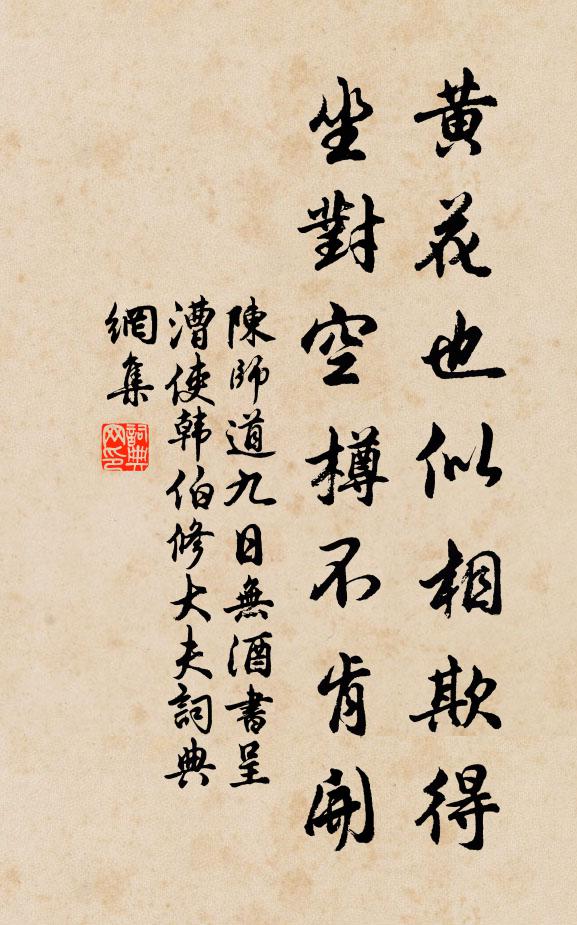 黃花也似相欺得
坐對空樽不肯開
陳師道九日無酒書呈
漕使韩伯修大夫詞典
網集
詞典
网印